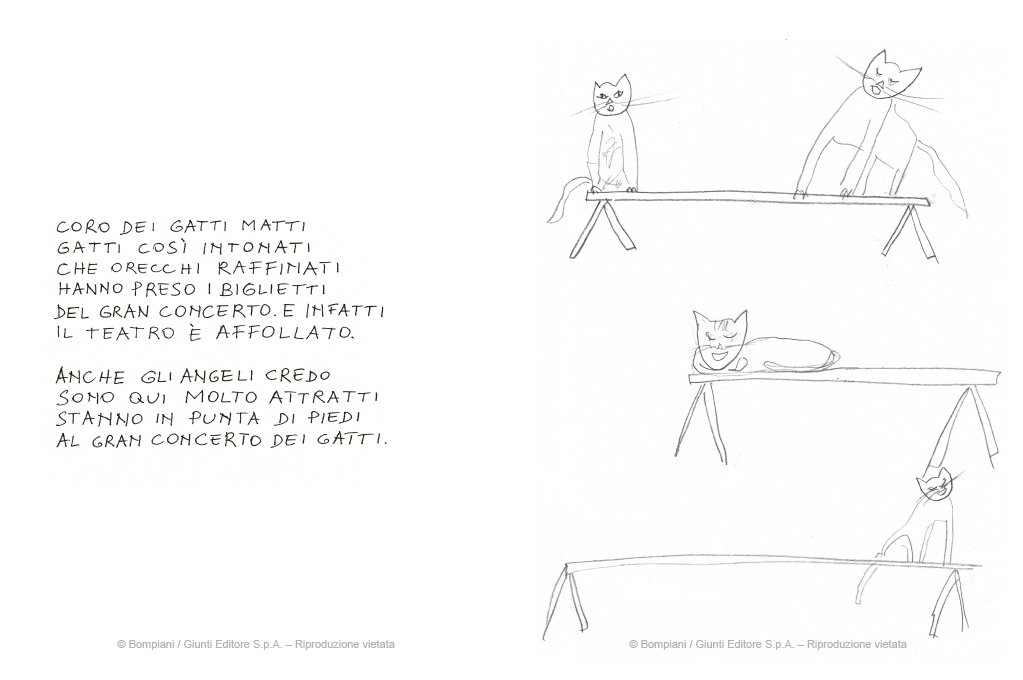 CORO DEI GATTI MATTI
GATTI COSÌ INTONATI
CHE ORECCHI RAFFINATI
HANNO PRESO I BIGLIETTI
DEL GRAN CONCERTO. E INFATTI
IL TEATRO È AFFOLLATO.
ANCHE GLI ANGELI CREDO
SONO QUI MOLTO ATTRATTI
STANNO IN PUNTA DI PIEDI
AL GRAN CONCERTO DEI GATTI.
© Bompiani / Giunti Editore S.p.A. – Riproduzione vietata
© Bompiani / Giunti Editore S.p.A. – Riproduzione vietata